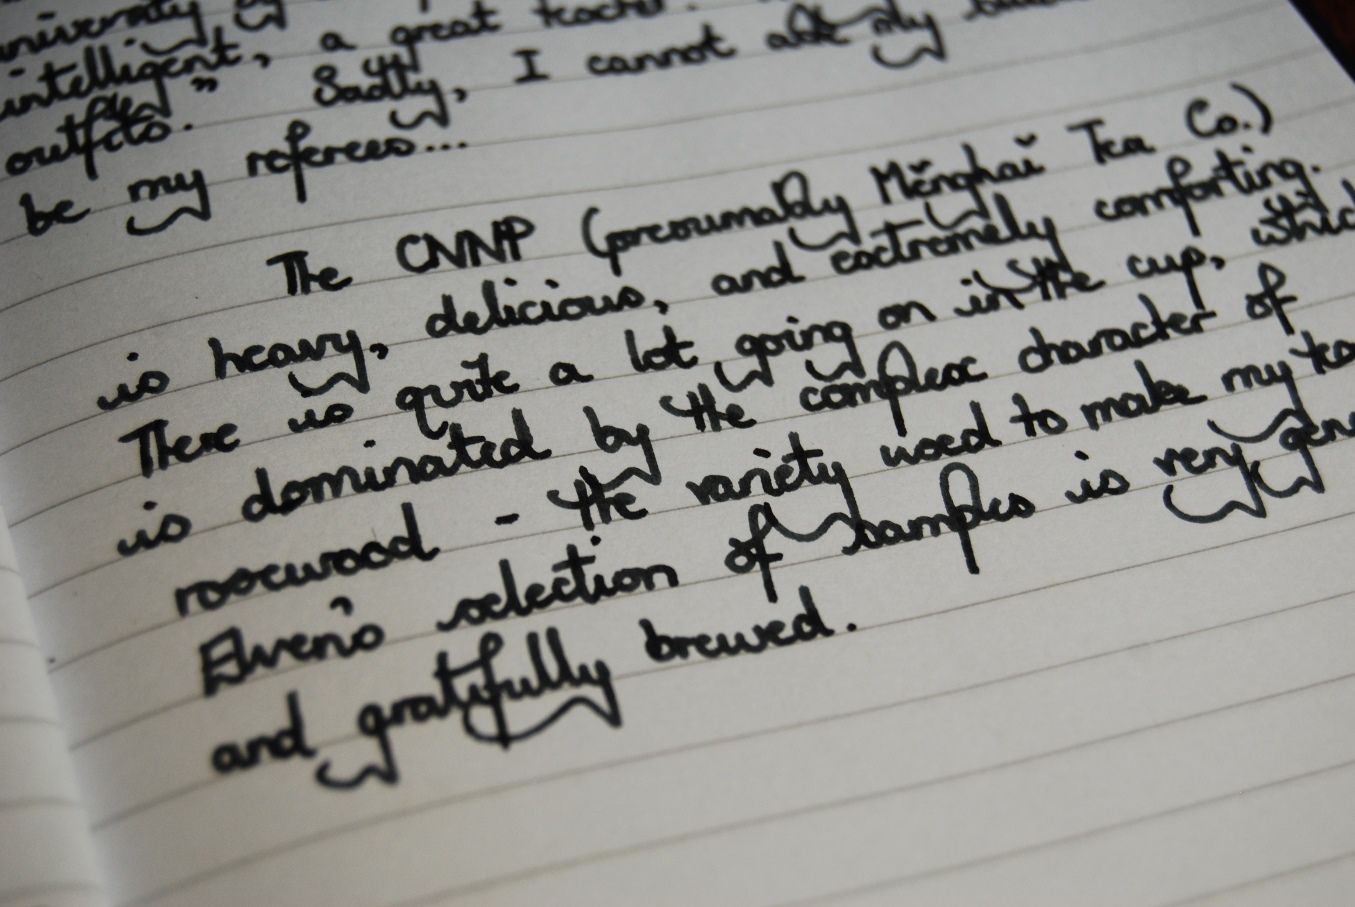 university
intelligent, a great teacher.
outfits." Sadly, I cannot ask my
be my referees...
The CNNP (presumably Měnghǎi Tea Co.)
is heavy, delicious, and extremely comforting.
There is quite a lot going on in the cup, which
is dominated by the complex character of
rosewood - the variety used to make my
Elven's selection of samples is very
and gratifully brewed.